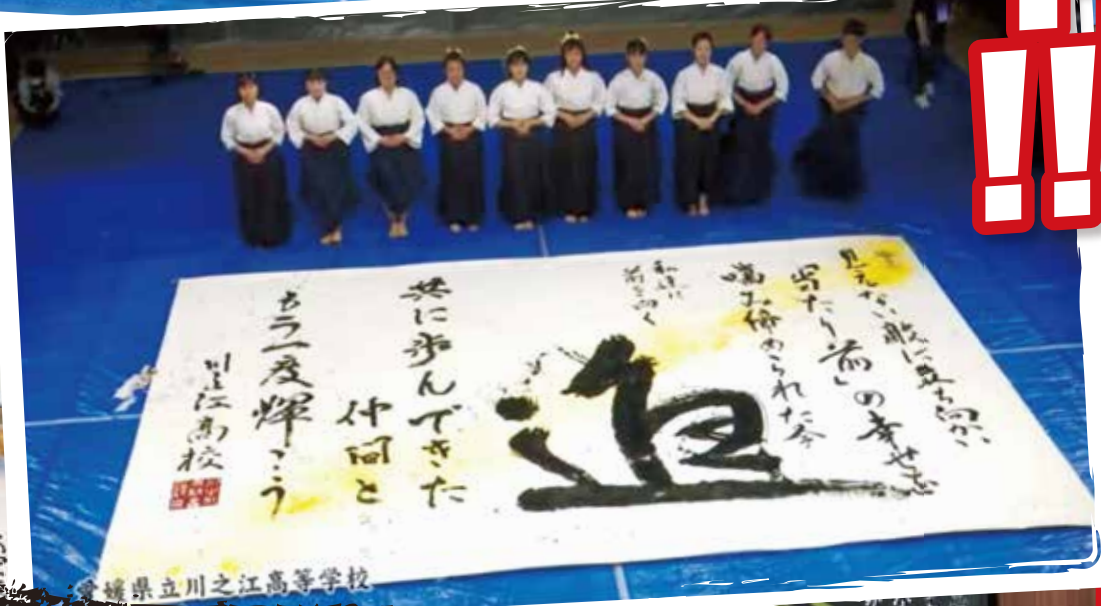 !!
見えない敵に立ち向かい
当たり前」の幸せを
噛み締められた今
私達は
前を向く
道
共に歩んできた
仲間と
もう一度輝こう
川之江高校
愛媛県立川之江高等学校